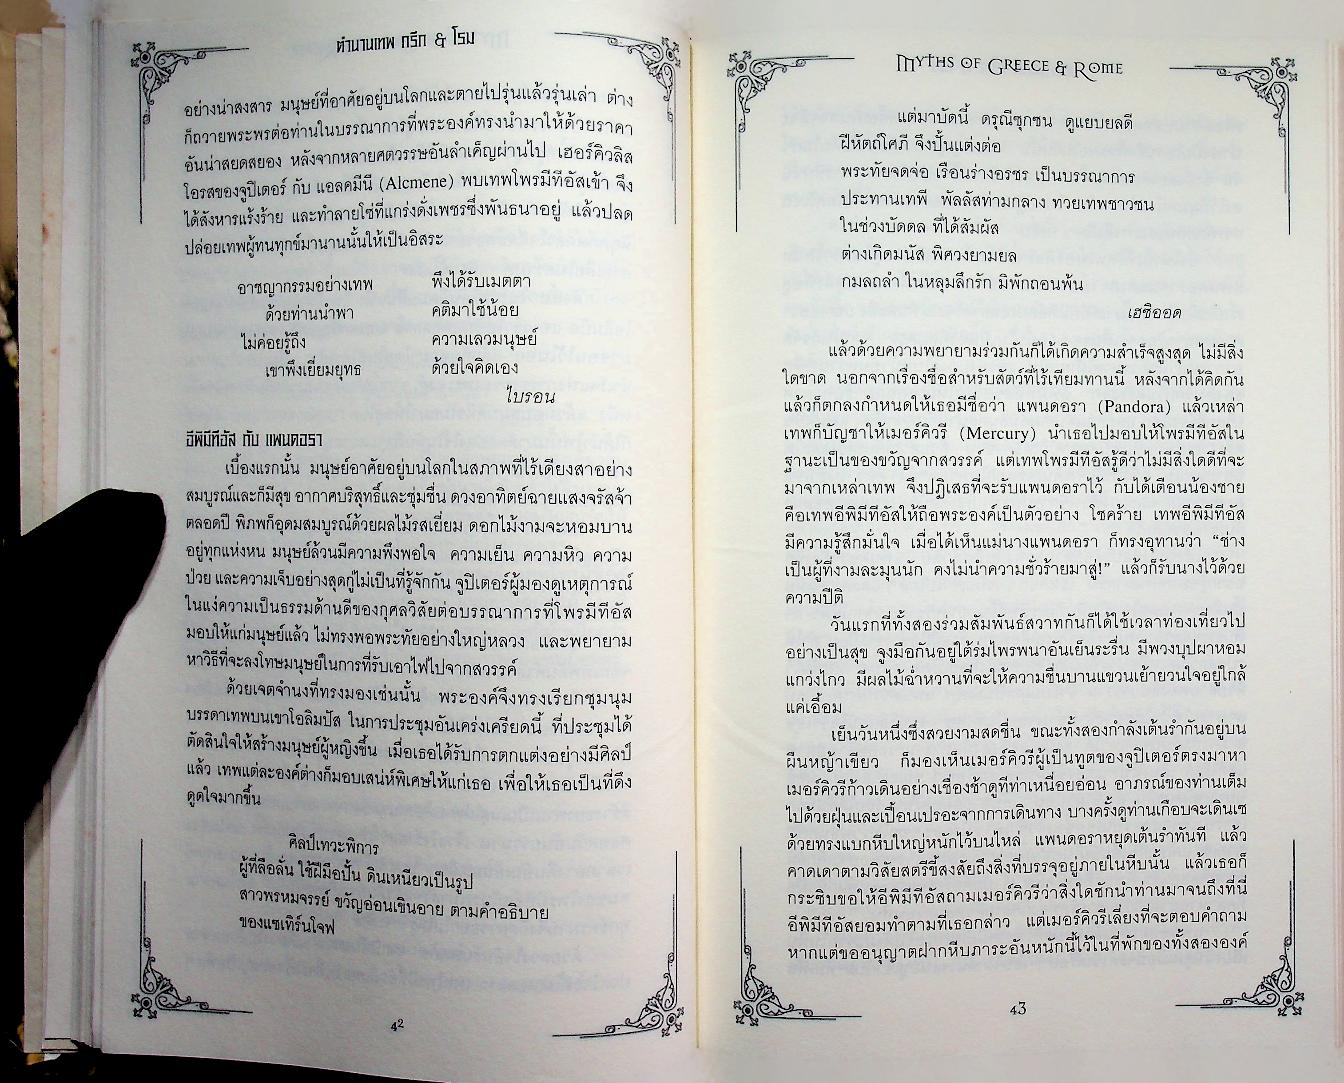 ตำนานเทพ กรีก & โรม
อย่างน่าสงสาร มนุษย์ที่อาศัยอยู่บนโลกและตายไปรุ่นแล้วรุ่นเล่า ต่าง
ก็ถวายพระพรต่อท่านในบรรณาการที่พระองค์ทรงนำมาให้ด้วยราคา
อันน่าสยดสยอง หลังจากหลายศตวรรษอันลำเค็ญผ่านไป เฮอร์คิวลิส
โอรสของจูปิเตอร์ กับ แอลคมีนี (Alcmene) พบเทพโพรมีทีอัสเข้า จึง
ได้สังหารแร้งร้าย และทำลายโซ่ที่แกร่งดั่งเพชรซึ่งพันธนาอยู่ แล้วปลด
ปล่อยเทพผู้ทนทุกข์มานานนั้นให้เป็นอิสระ
อาชญากรรมอย่างเทพ พึงได้รับเมตตา
ด้วยท่านนำพา คติมาใช้น้อย
ไม่ค่อยรู้ถึง ความเลวมนุษย์
เขาพึงเยี่ยมยุทธ ด้วยใจคิดเอง
ไบรอน
อีพิมีทีอัส กับ แพนดอรา
เบื้องแรกนั้น มนุษย์อาศัยอยู่บนโลกในสภาพที่ไร้เดียงสาอย่าง
สมบูรณ์และก็มีสุข อากาศบริสุทธิ์และชุ่มชื่น ดวงอาทิตย์ฉายแสงจรัสจ้า
ตลอดปี พิภพก็อุดมสมบูรณ์ด้วยผลไม้รสเยี่ยม ดอกไม้งามจะหอมบาน
อยู่ทุกแห่งหน มนุษย์ล้วนมีความพึงพอใจ ความเย็น ความหิว ความ
ป่วย และความเจ็บอย่างสุดกู่ไม่เป็นที่รู้จักกัน จูปิเตอร์ผู้มองดูเหตุการณ์
ในแง่ความเป็นธรรมด้านดีของกุศลวิสัยต่อบรรณาการที่โพรมีทีอัส
มอบให้แก่มนุษย์แล้ว ไม่ทรงพอพระทัยอย่างใหญ่หลวง และพยายาม
หาวิธีที่จะลงโทษมนุษย์ในการที่รับเอาไฟไปจากสวรรค์
ด้วยเจตจำนงที่ทรงมองเช่นนั้น พระองค์จึงทรงเรียกชุมนุม
บรรดาเทพบนเขาโอลิมปัส ในการประชุมอันเคร่งเครียดนี้ ที่ประชุมได้
ตัดสินใจให้สร้างมนุษย์ผู้หญิงขึ้น เมื่อเธอได้รับการตกแต่งอย่างมีศิลป์
แล้ว เทพแต่ละองค์ต่างก็มอบเสน่ห์พิเศษให้แก่เธอ เพื่อให้เธอเป็นที่ดึง
ดูดใจมากขึ้น
ศิลป์เทวะพิการ
ผู้ที่ลือลั่น ใช้ฝีมือปั้น ดินเหนียวเป็นรูป
สาวพรหมจรรย์ ขวัญอ่อนเขินอาย ตามคำอธิบาย
ของแซเทิร์นโจฟ
42
Myths of Greece & Rome
แต่มาบัดนี้ ดรุณีซุกซน ดูแยบยลดี
ฝีหัตถ์โศภี จึงปั้นแต่งต่อ
พระทัยจดจ่อ เรือนร่างอรชร เป็นบรรณาการ
ประทานเทพี พัลลัสท่ามกลาง ทวยเทพชาวชน
ในช่วงบัดดล ที่ได้สัมผัส
ต่างเกิดมนัส พิศวงยามยล
กมลถลำ ในหลุมลึกรัก มิพักถอนพ้น
เฮซิออด
แล้วด้วยความพยายามร่วมกันก็ได้เกิดความสำเร็จสูงสุด ไม่มีสิ่ง
ใดขาด นอกจากเรื่องชื่อสำหรับสัตว์ที่ไร้เทียมทานนี้ หลังจากได้คิดกัน
แล้วก็ตกลงกำหนดให้เธอมีชื่อว่า แพนดอรา (Pandora) แล้วเหล่า
เทพก็บัญชาให้เมอร์คิวรี (Mercury) นำเธอไปมอบให้โพรมีทีอัสใน
ฐานะเป็นของขวัญจากสวรรค์ แต่เทพโพรมีทีอัสรู้ดีว่าไม่มีสิ่งใดดีที่จะ
มาจากเหล่าเทพ จึงปฏิเสธที่จะรับแพนดอราไว้ กับได้เตือนน้องชาย
คือเทพอีพิมีทีอัสให้ถือพระองค์เป็นตัวอย่าง โชคร้าย เทพอีพิมีทีอัส
มีความรู้สึกมั่นใจ เมื่อได้เห็นแม่นางแพนดอรา ก็ทรงอุทานว่า “ช่าง
เป็นผู้ที่งามละมุนนัก คงไม่นำความชั่วร้ายมาสู่!” แล้วก็รับนางไว้ด้วย
ความปีติ
วันแรกที่ทั้งสองร่วมสัมพันธ์สวาทกันก็ได้ใช้เวลาท่องเที่ยวไป
อย่างเป็นสุข จูงมือกันอยู่ใต้ร่มไพรพนาอันเย็นระรื่น มีพวงบุปผาหอม
แกว่งไกว มีผลไม้ฉ่ำหวานที่จะให้ความชื่นบานแขวนเย้ายวนใจอยู่ใกล้
แค่เอื้อม
เย็นวันหนึ่งซึ่งสวยงามสดชื่น ขณะทั้งสองกำลังเต้นรำกันอยู่บน
ผืนหญ้าเขียว ก็มองเห็นเมอร์คิวรีผู้เป็นทูตของจูปิเตอร์ตรงมาหา
เมอร์คิวรีก้าวเดินอย่างเชื่องช้าดูทีท่าเหนื่อยอ่อน อาภรณ์ของท่านเต็ม
ไปด้วยฝุ่นและเปื้อนเปรอะจากการเดินทาง บางครั้งดูท่านเกือบจะเดินเซ
ด้วยทรงแบกหีบใหญ่หนักไว้บนไหล่ แพนดอราหยุดเต้นรำทันที แล้ว
คาดเดาตามวิสัยสตรีขี้สงสัยถึงสิ่งที่บรรจุอยู่ภายในหีบนั้น แล้วเธอก็
กระซิบขอให้อีพิมีทีอัสถามเมอร์คิวรีว่าสิ่งใดชักนำท่านมาจนถึงที่นี่
อีพิมีทีอัสยอมทำตามที่เธอกล่าว แต่เมอร์คิวรีเลี่ยงที่จะตอบคำถาม
หากแต่ขออนุญาตฝากหีบภาระอันหนักนี้ไว้ในที่พักของทั้งสององค์
43